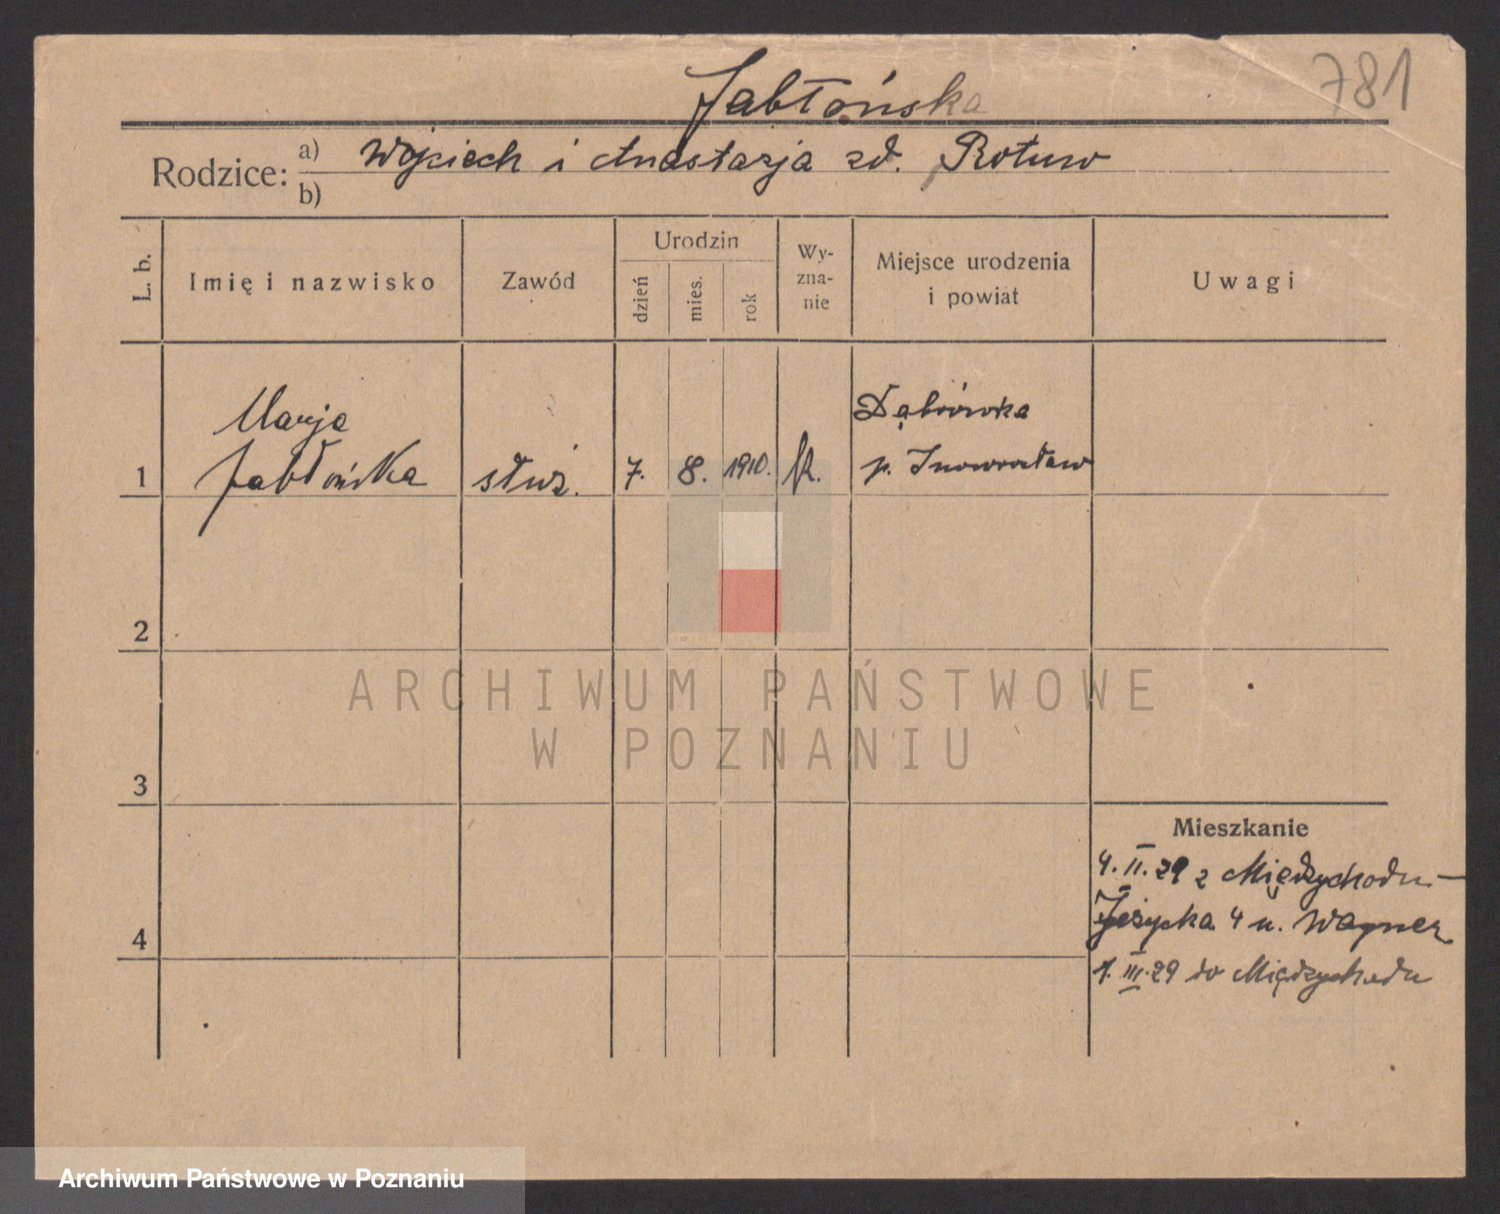 781
Jabłońska
Rodzice: a) Wojciech i Anastazja zd.
b)
L. b.
Imię i nazwisko
Zawód
Urodzin
dzień
mies.
rok
Wy-
zna-
nie
Miejsce urodzenia
i powiat
Uwagi
1
Marja
Jabłońska
służ.
7.
8.
1910.
k.
Dąbrówka
p. Inowrocław
2
3
4
Mieszkanie
4.II.29 z Międzychodu—
4 u. Wagner
1.III.29 do Międzychodu
ARCHIWUM PAŃSTWOWE
W POZNANIU
Archiwum Państwowe w Poznaniu